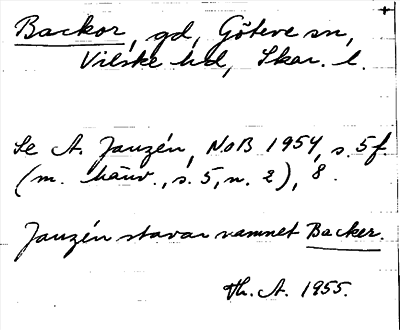 Backor, gd, Göteve sn,
Vilske hd, Skar. l.
Se A. Janzén, NoB 1954, s. 5f.
(m. hänv., s. 5, n. 2), 8.
Janzén stavar namnet Backer.
Th. A. 1955.